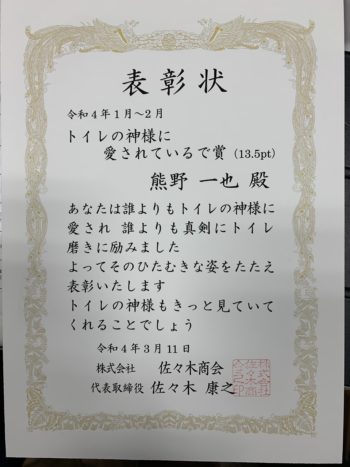 表彰状
令和4年1月～2月
トイレの神様に
愛されているで賞（13.5pt）
熊野 一也 殿
あなたは誰よりもトイレの神様に
愛され 誰よりも真剣にトイレ
磨きに励みました
よってそのひたむきな姿をたたえ
表彰いたします
トイレの神様もきっと見ていて
くれることでしょう
令和4年3月11日
株式会社 佐々木商会
代表取締役 佐々木 康之
株式会社
佐々木商
会之印